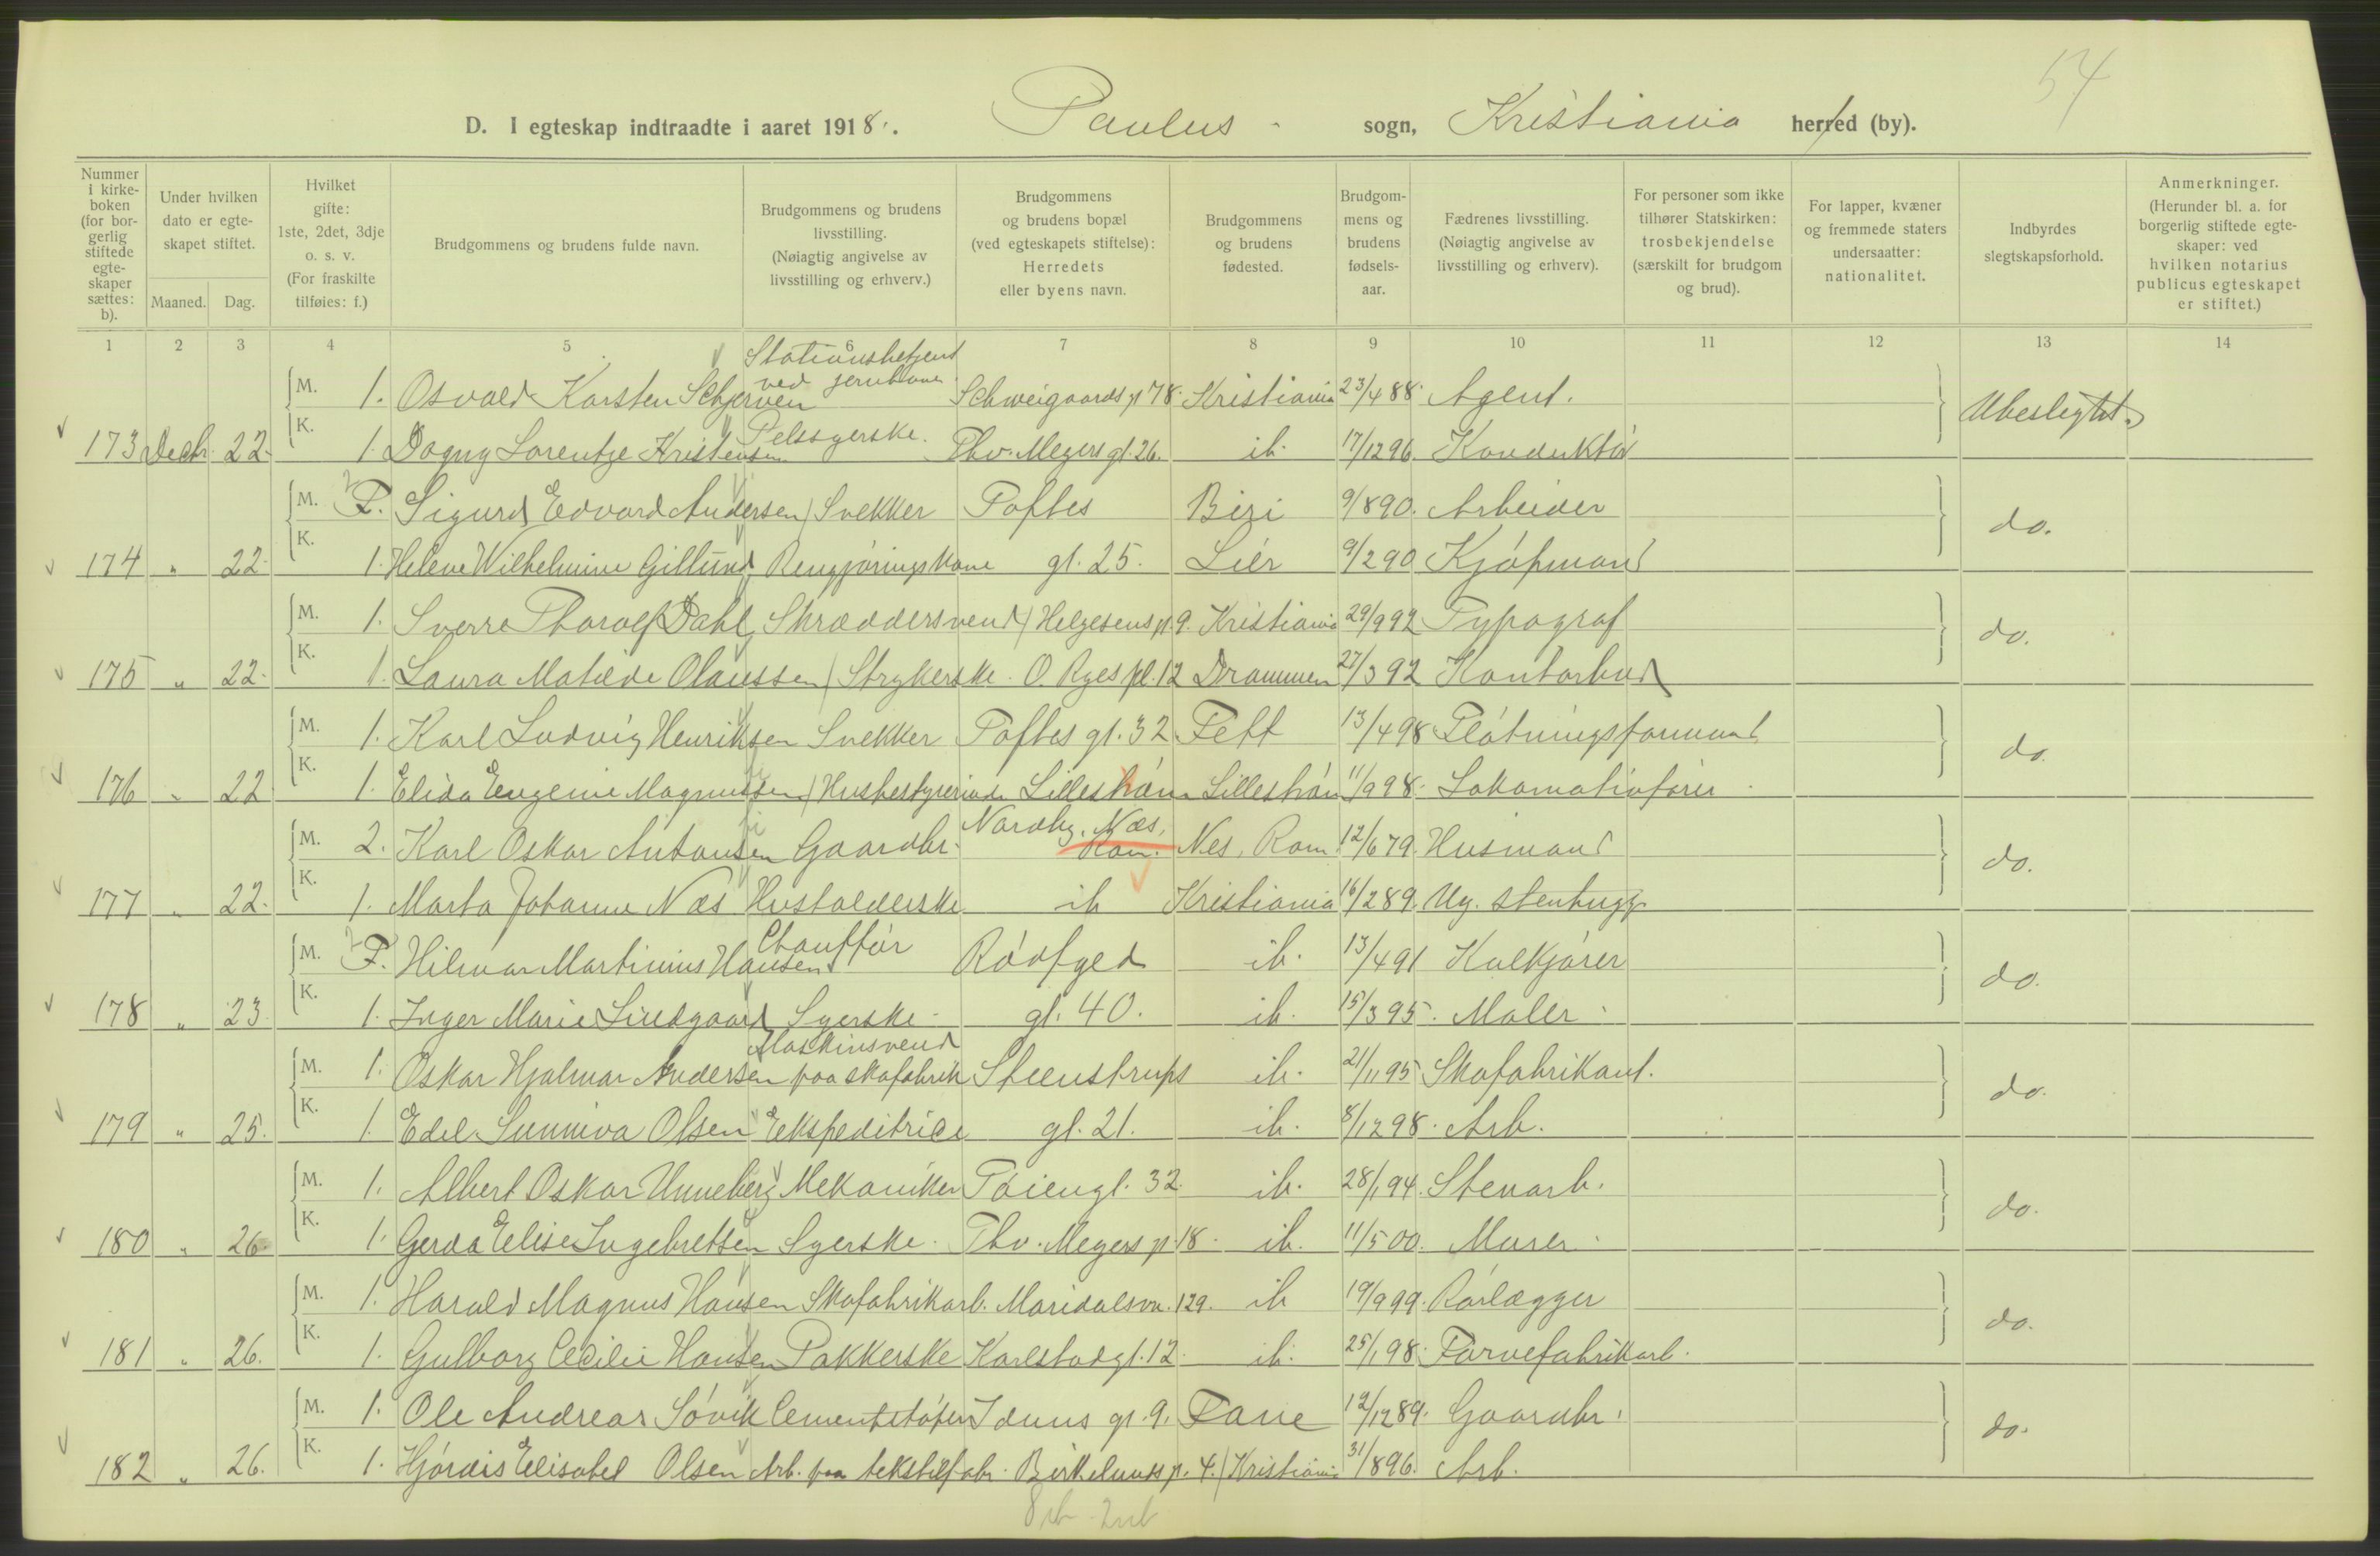 54
D. I egteskap indtraadte i aaret 1918. Paulus sogn, Kristiania herred (by).
Nummer i kirkeboken (for borgerlig stiftede egteskaper sættes: b).
Under hvilken dato er egteskapet stiftet.
Maaned. Dag.
Hvilket gifte: 1ste, 2det, 3dje o. s. v. (For fraskilte tilføies: f.)
Brudgommens og brudens fulde navn.
Brudgommens og brudens livsstilling. (Nøiagtig angivelse av livsstilling og erhverv.)
Brudgommens og brudens bopæl (ved egteskapets stiftelse): Herredets eller byens navn.
Brudgommens og brudens fødested.
Brudgommens og brudens fødselsaar.
Fædrenes livsstilling. (Nøiagtig angivelse av livsstilling og erhverv).
For personer som ikke tilhører Statskirken: trosbekjendelse (særskilt for brudgom og brud).
For lapper, kvæner og fremmede staters undersaatter: nationalitet.
Indbyrdes slegtskapsforhold.
Anmerkninger. (Herunder bl. a. for borgerlig stiftede egteskaper: ved hvilken notarius publicus egteskapet er stiftet.)
1 2 3 4 5 6 7 8 9 10 11 12 13 14
M. 1. Osvald Karsten Schjerven Stationsbetjent ved jernbanen Schweigaards gt 78. Kristiania 23/4 88. Agent. Ubeslegtet.
173 Decbr. 22. K. 1. Dagny Lorentze Kristensen Pelssyerske. Thv. Meyers gt. 26. ib. 17/12 96. Konduktør
M. F. Sigurd Edvard Andersen Snekker Toftes Biri 9/8 90. Arbeider do.
174 " 22. K. 1. Helene Wilhelmine Gillund Rengjøringskone gt. 25. Lier 9/2 90 Kjøpmand
M. 1. Sverre Tharalf Dahl Skræddersvend Helgesens gt 9. Kristiania 29/9 92 Typograf do.
175 " 22. K. 1. Laura Matilde Olaussen Strykerske. O. Ryes pl. 12 Drammen 27/3 92 Kontorbud
M. 1. Karl Ludvig Henriksen Snekker Toftes gt. 32 Fett 13/4 98 Fløtningsformand do.
176 " 22 K. 1. Elida Eugenie Magnussen Husbestyrerinde Lillestrøm Lillestrøm 11/9 98. Lokomotivfører
M. 2. Karl Oskar Antonsen Gaardbr. Nordby. Næs, Rom. Nes, Rom. 12/6 79. Husmand do.
177 " 22. K. 1. Marta Johanne Næs Husholderske ib Kristiania 16/2 89. Ug. Stenhugg.
M. F. Hilmar Martinius Hansen Chauffør Rødfyed ib. 13/4 91 Kulkjører do.
178 " 23. K. 1. Inger Marie Lindgaard Syerske gt. 40. ib. 15/3 95. Maler
M. 1. Oskar Hjalmar Andersen Maskinsvend paa skofabrik Steenstrups ib. 21/11 95 Skofabrikant. do.
179 " 25. K. 1. Edel Sunniva Olsen Ekspeditrice gt. 21. ib. 8/12 98. Arb.
M. 1. Albert Oskar Unneberg Mekaniker Tøiengt. 32. ib. 28/1 94. Stenarb. do.
180 " 26. K. 1. Gerda Elise Ingebretsen Syerske. Thv. Meyers gt 18. ib. 11/5 00. Murer.
M. 1. Harald Magnus Hansen Skofabrikarb. Maridalsvn. 129. ib 19/9 99. Rørlægger do.
181 " 26. K. 1. Gulborg Cecilie Hansen Pakkerske Karlstadgt. 12. ib. 25/1 98. Farvefabrikarb.
M. 1. Ole Andreas Søvik Cementstøper Iduns gt. 9. Fane 12/12 89. Gaardbr. do.
182 " 26. K. 1. Hjørdis Elisabel Olsen Arb. paa tekstilfabr. Birkelunds gt. 4. Kristiania 31/8 96. Arb.